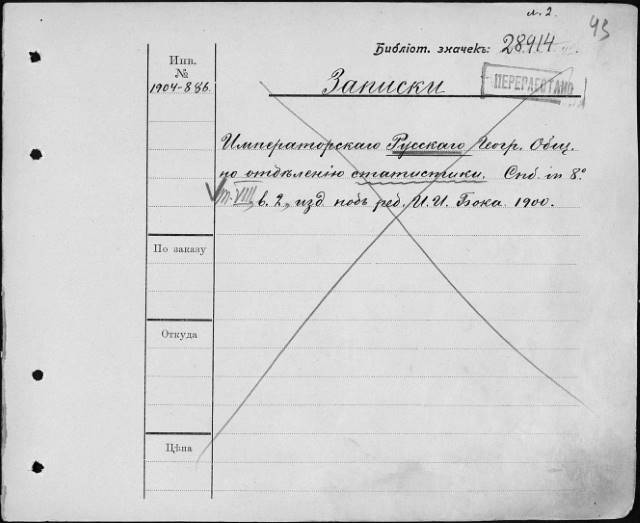 л. 2.
43
Библіот. значекъ: 28914
Инв.
№
1904-886.
ПЕРЕРАБОТАНО
Записки
Императорскаго Русскаго Геогр. Общ.
по отдѣленію статистики. Спб. in 8°
т. VIII, в. 2, изд. подъ ред. И. И. Бока. 1900.
По заказу
Откуда
Цѣна